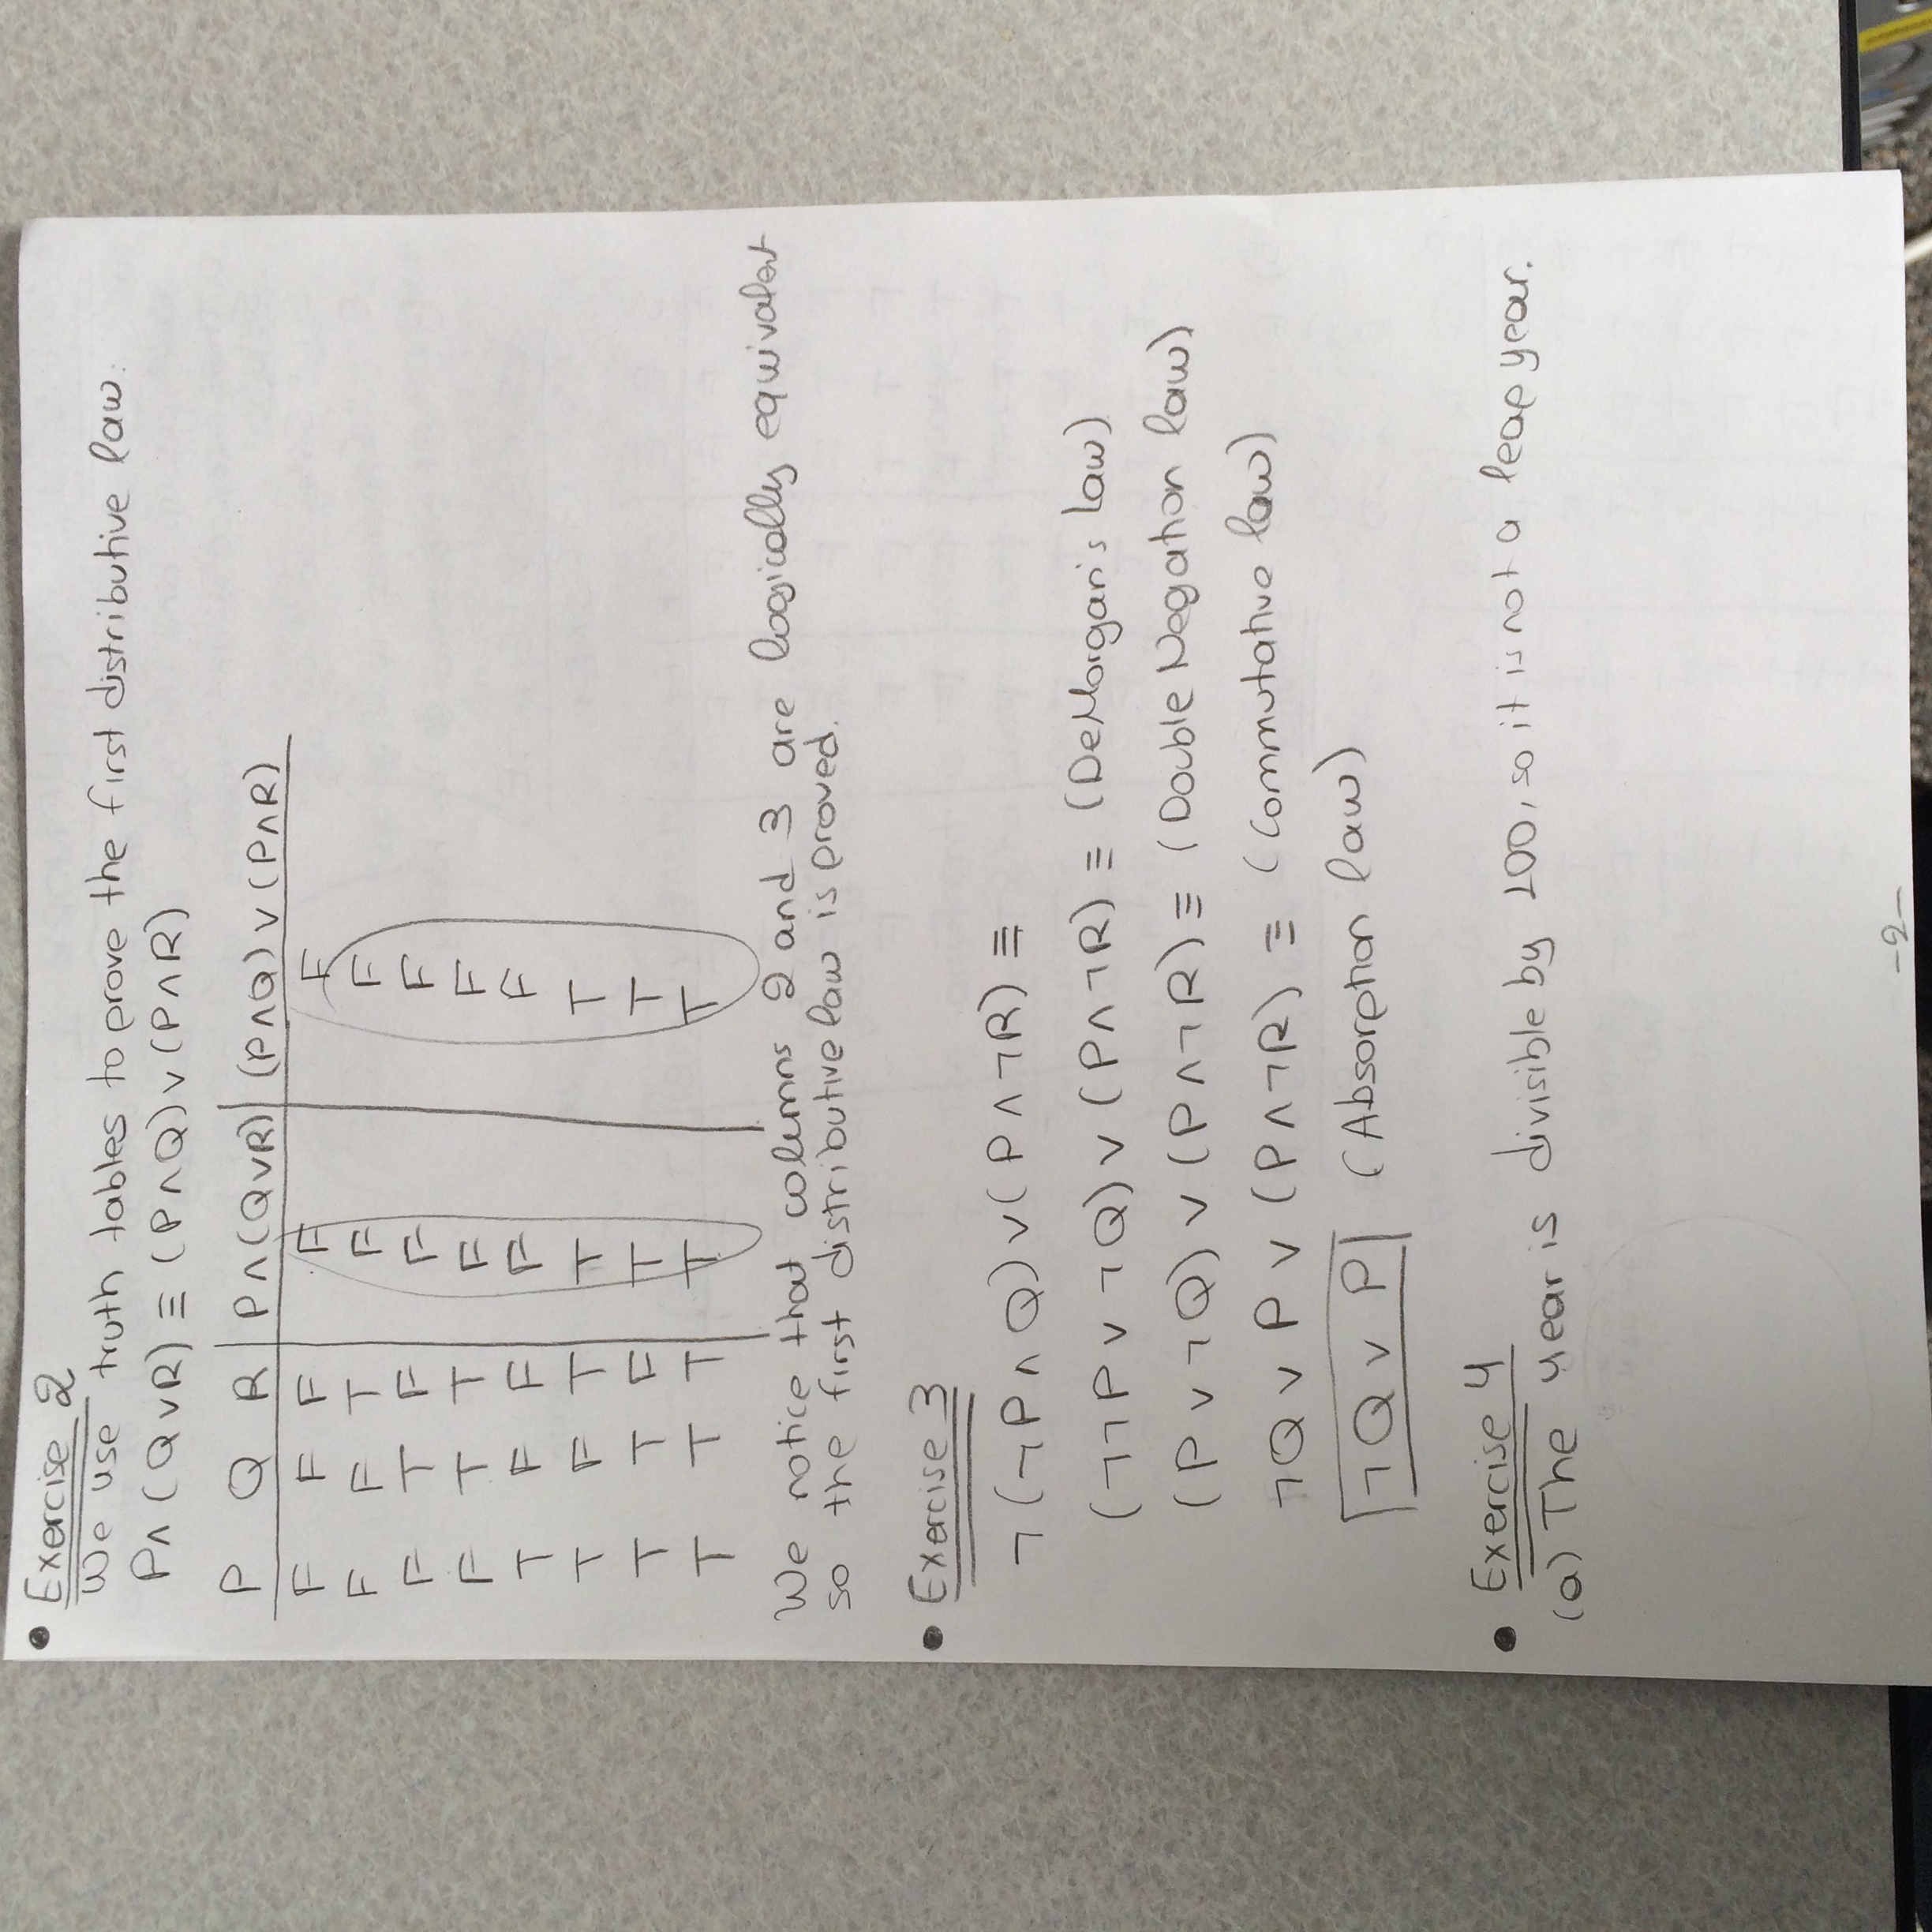 • Exercise 2
We use truth tables to prove the first distributive law:
P∧(Q∨R) ≡ (P∧Q)∨(P∧R)
P Q R | P∧(Q∨R) | (P∧Q)∨(P∧R)
F F F F F
F F T F F
F T F F F
F T T F F
T F F F F
T F T T T
T T F T T
T T T T T
We notice that columns 2 and 3 are logically equivalent
so the first distributive law is proved.
• Exercise 3
¬(¬P∧Q)∨(P∧¬R) ≡
(¬¬P∨¬Q)∨(P∧¬R) ≡ (DeMorgan's law)
(P∨¬Q)∨(P∧¬R) ≡ (Double Negation law)
¬Q∨P∨(P∧¬R) ≡ (Commutative law)
¬Q∨P (Absorption law)
• Exercise 4
(a) The year is divisible by 100, so it is not a leap year.
-2-